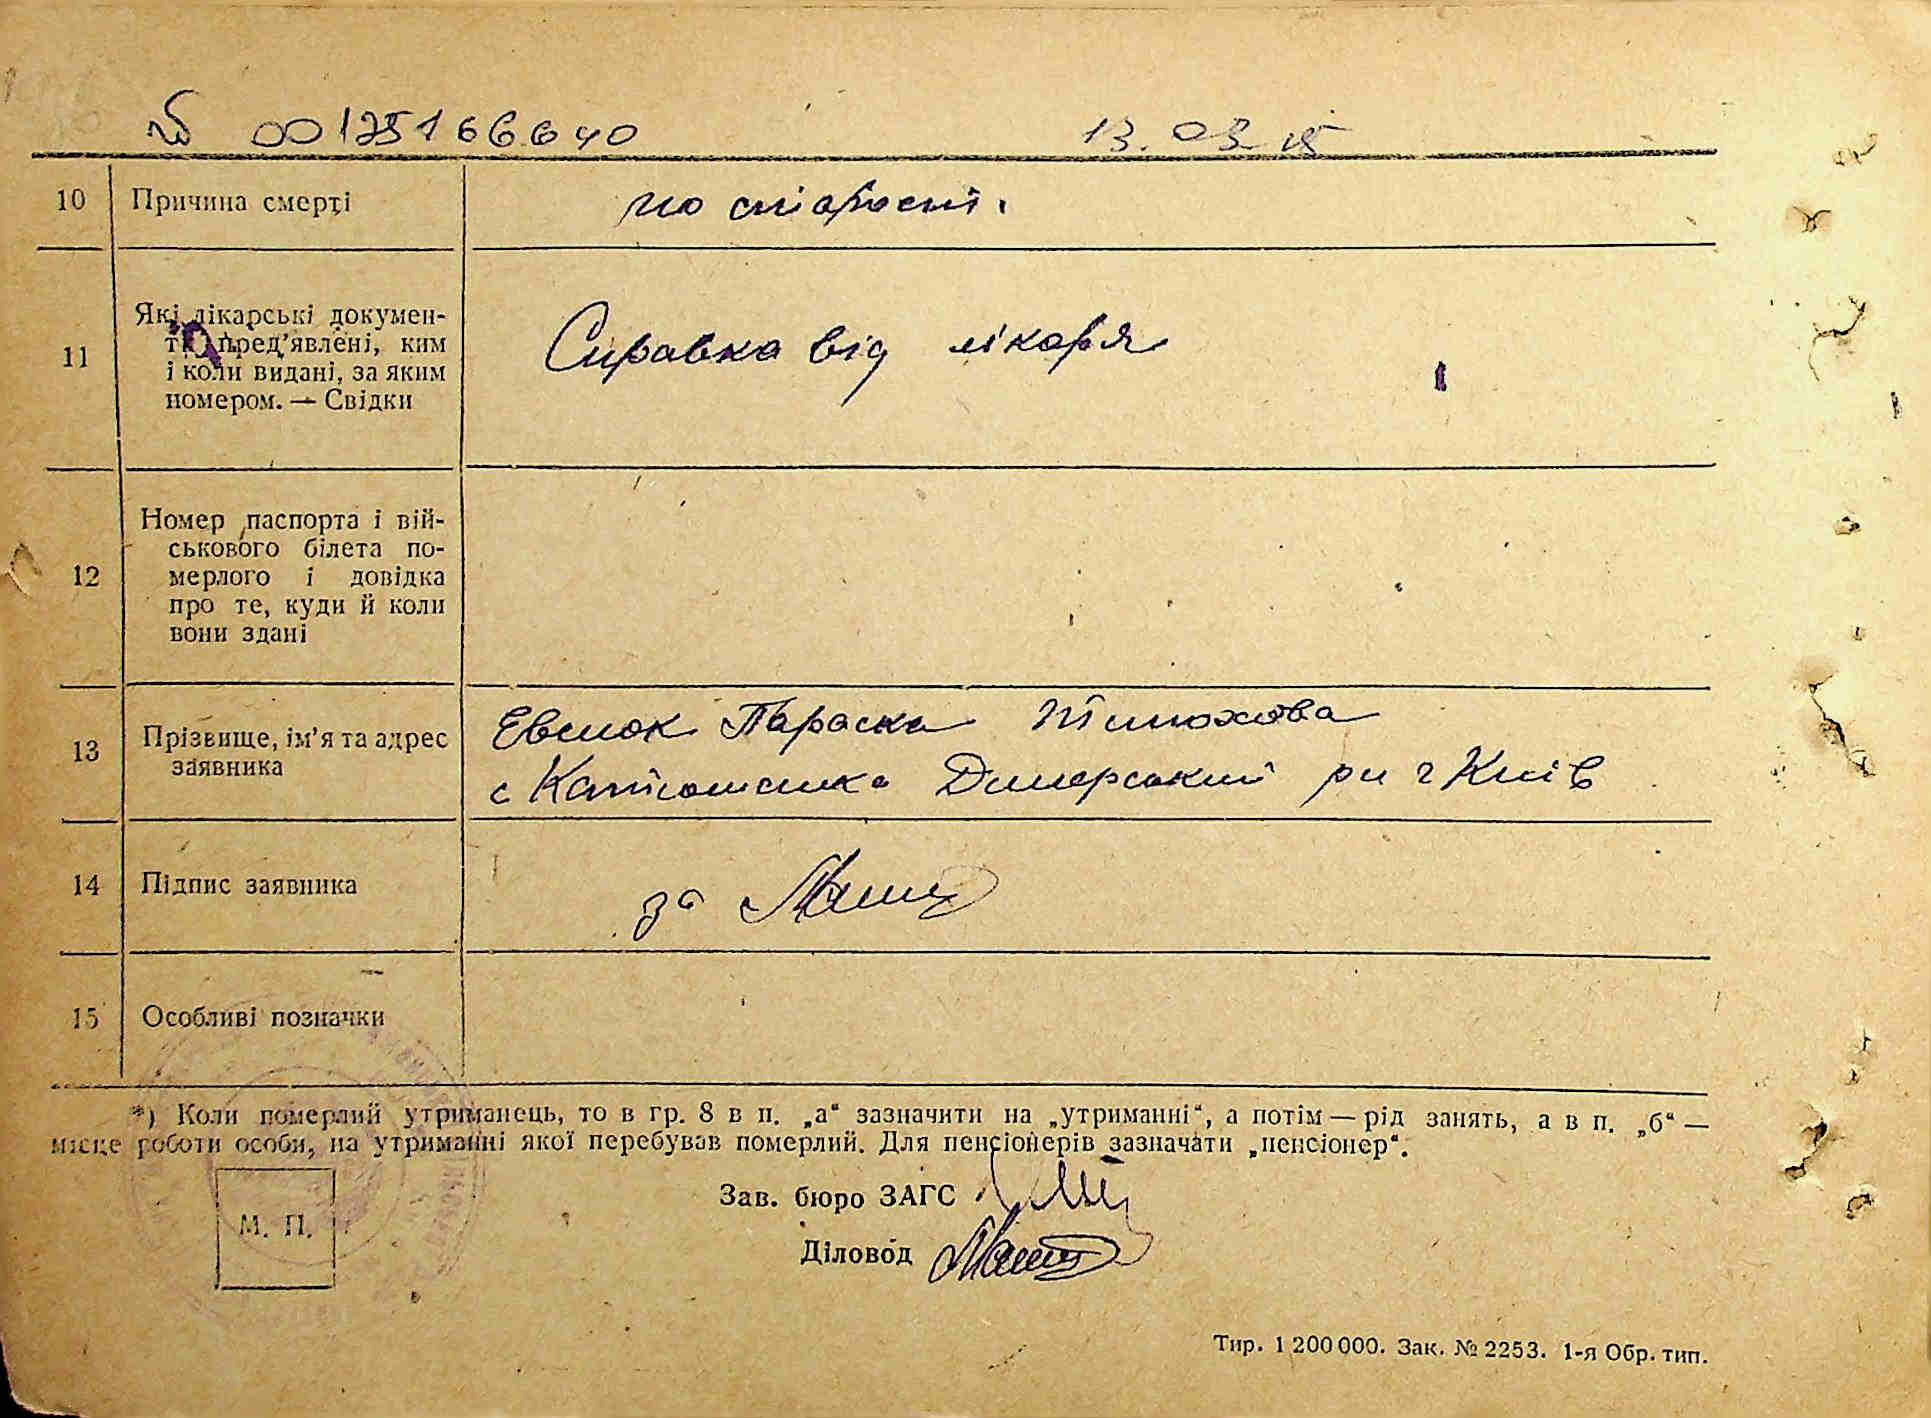 № 00125166640 13.03.15
10 Причина смерті по старості.
11 Які лікарські докумен-
ти пред’явлені, ким
і коли видані, за яким
номером. — Свідки
Справка від лікаря
12 Номер паспорта і вій-
ськового білета по-
мерлого і довідка
про те, куди й коли
вони здані
13 Прізвище, ім’я та адрес
заявника
Параска
с Катюжанка Димерський рн г Київ
14 Підпис заявника за
15 Особливі позначки
*) Коли померлий утриманець, то в гр. 8 в п. „а“ зазначити на „утриманні“, а потім — рід занять, а в п. „б“ —
місце роботи особи, на утриманні якої перебував померлий. Для пенсіонерів зазначати „пенсіонер“.
Зав. бюро ЗАГС
М. П.
Діловод
Тир. 1 200 000. Зак. № 2253. 1-я Обр. тип.